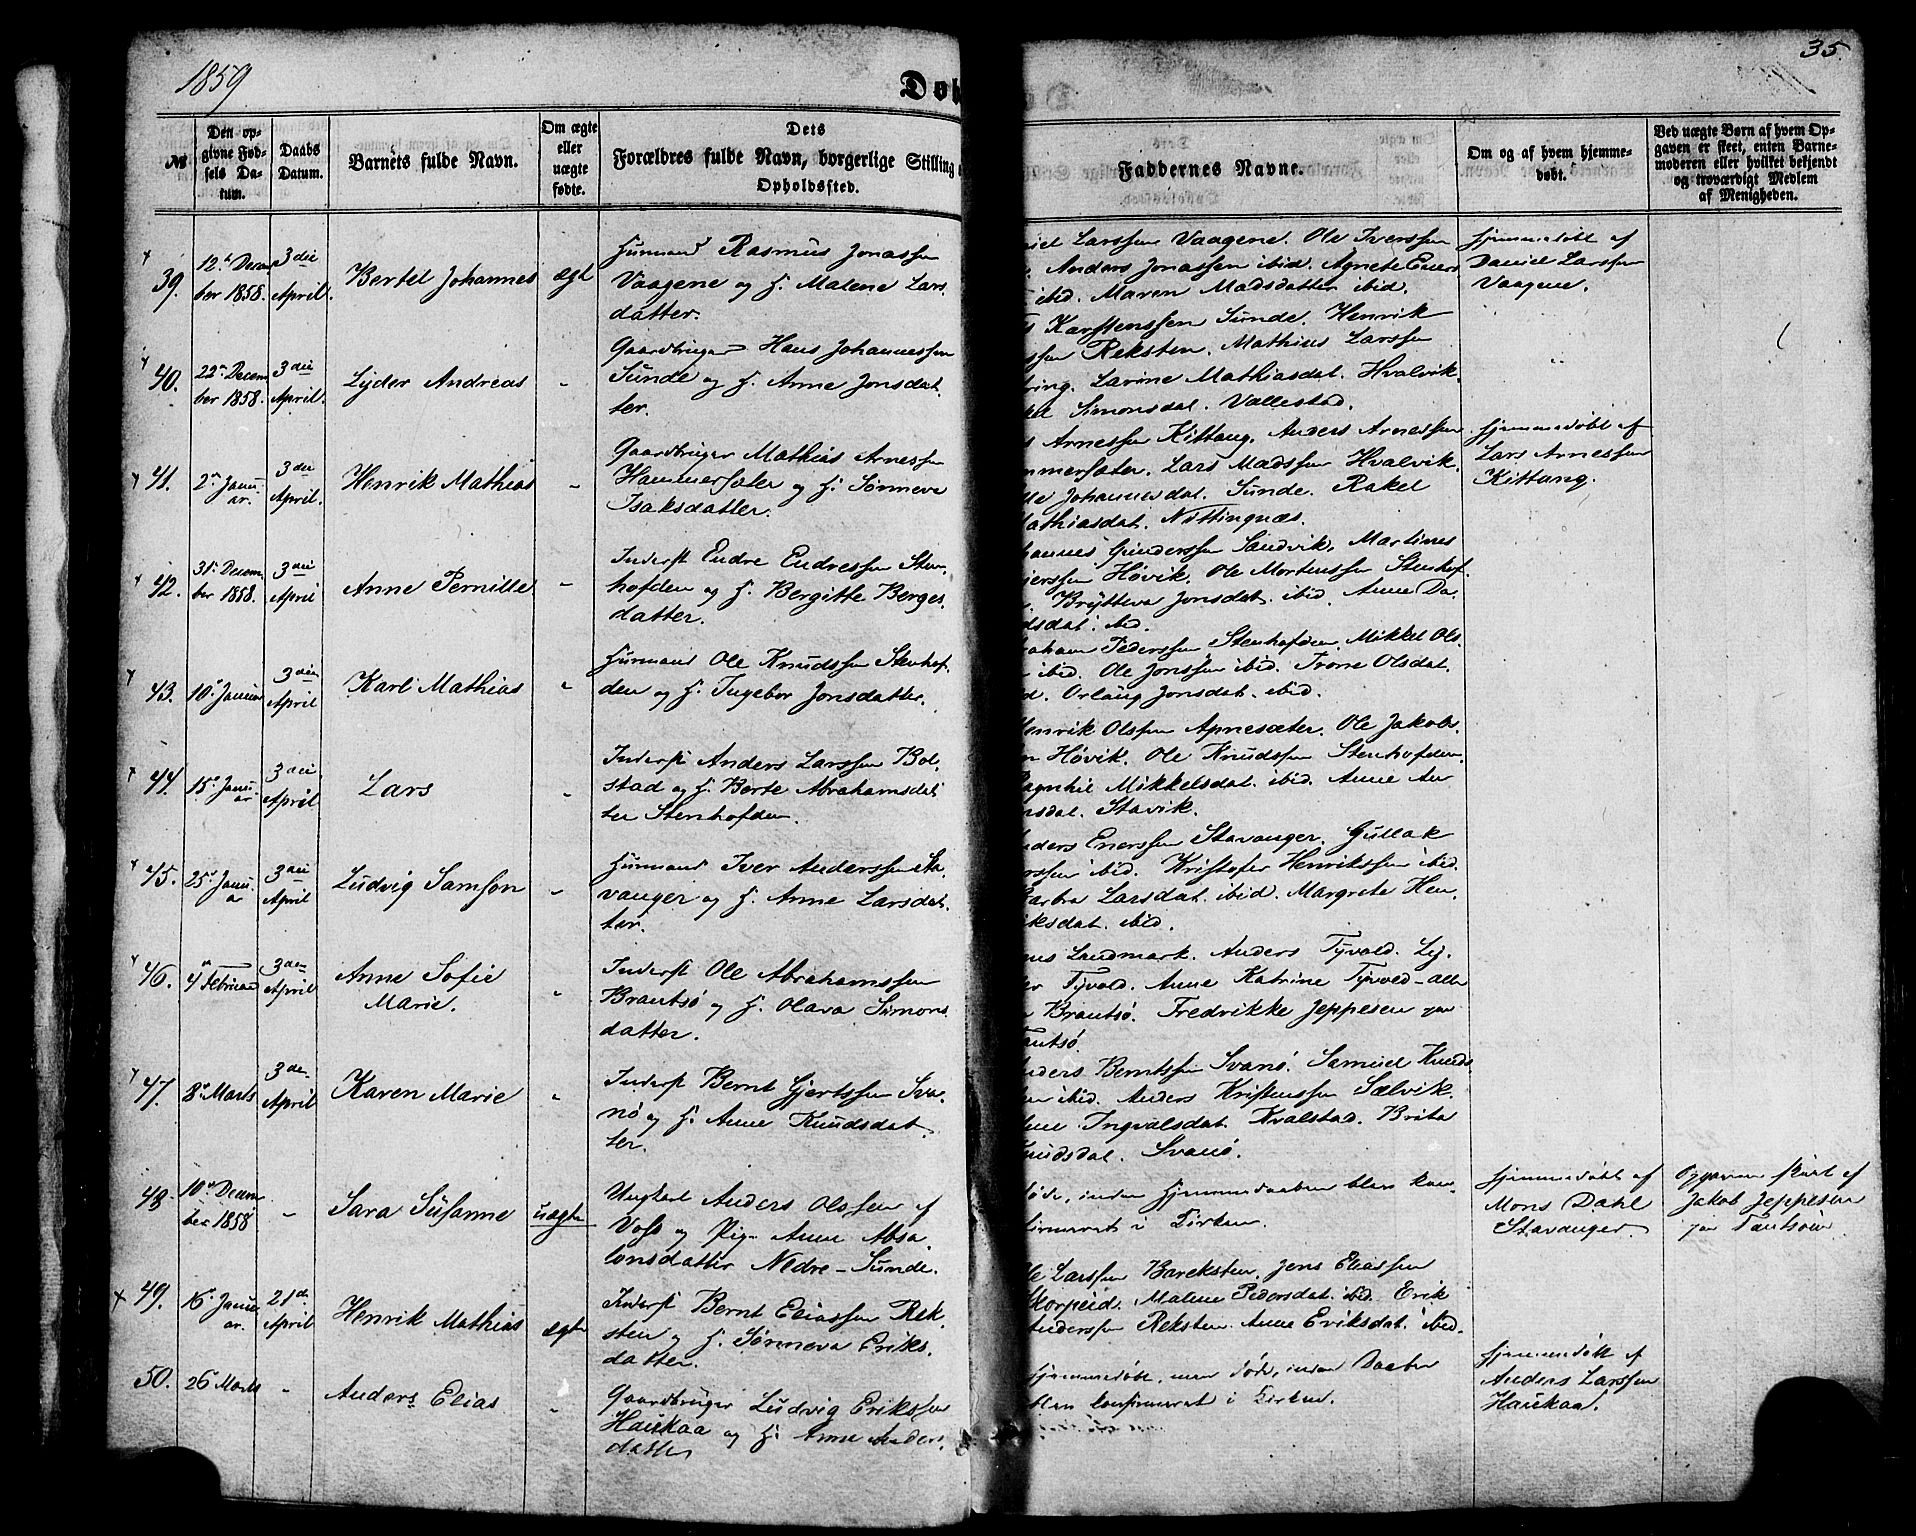 1859
Døb
35.
№
Den opgivne Fødsels Datum.
Daabs Datum.
Barnets fulde Navn.
Om ægte eller uægte fødte.
Dets Forældres fulde Navn, borgerlige Stilling
Opholdssted.
Faddernes Navne.
Om og af hvem hjemmedøbt.
Ved uægte Børn af hvem Opgaven er skeet, enten Barnemoderen eller hvilket bekjendt og troværdigt Medlem af Menigheden.
39.
12te Decem
ber 1858.
3die
April.
Bertel Johannes
ægt
Huusmand Rasmus Jonassen
Vaagene og H. Malene Lars
datter.
iel Larssen Vaagene. Ole Iverssen
Anders Jonassen ibid. Agnete Eners
ibid. Maren Madsdatter ibid.
Hjemmedøbt af
Daniel Larssen
Vaagene.
40.
22de Decem
ber 1858.
3die
April.
Lyder Andreas
-
Gaardbruger Hans Johannessen
Sunde og H. Anne Jonsdat
ter.
Karstenssen Sunde. Henrik
ssen Reksten. Mathias Larssen
Lavine Mathiasdat. Hvalvik.
Simonsdat. Vallestad.
41.
2den Janu
ar.
3die
April.
Henrik Mathias
-
Gaardbruger Mathias Arnessen
Hammersæter og H. Sønneva
Isaksdatter.
s Arnessen Kittang. Anders Arnessen
mmersæter. Lars Madssen Hvalvik.
Johannesdat. Sunde. Rakel
Mathiasdat. Nøttingnæs.
Hjemmedøbt af
Lars Arnessen
Kittang.
42.
31te Decem
ber 1858.
3die
April
Anne Pernille
-
Inderst Endre Endressen Sten
hofden og H. Bergitte Berges
datter.
hannes Gunderssen Sandvik. Martines
jerssen Høvik. Ole Mortenssen Stenhof
Brytteva Jonsdat. ibid. Anne Da
dsdat. ibid.
43.
10de Januar
3die
April
Karl Mathias
-
Huusmand Ole Knudssen Stenhof
den og H. Ingebor Jonsdatter.
raham Pederssen Stenhofden. Mikkel Ols
ibid. Ole Jonssen ibid. Trone Olsdat.
d. Orlaug Jonsdat. ibid.
44.
15de Janu
ar
3die
April
Lars
-
Inderst Anders Larssen Bol
stad og H. Berte Abrahamsdat
ter Stenhofden.
Henrik Olssen Apnesæter. Ole Jakobs
n Høvik. Ole Knudssen Stenhofden.
Ragnhil Mikkelsdat. ibid. Anne An
rsdat. Stavik.
45.
25de Janu
ar
3die
April
Ludvig Samson
-
Huusmand Iver Anderssen Sta
vanger og H. Anne Larsdat
ter.
nders Enerssen Stavanger. Gullak
rssen ibid. Kristofer Henrikssen ibid.
Barbra Larsdat. ibid. Margrete Hen
riksdat. ibid.
46.
4de Februar
3die
April
Anne Sofie
Marie.
-
Inderst Ole Abrahamssen
Brantsø og H. Olava Simons
datter.
ns Landmark. Anders Tyvold. Ly
er Tyvold. Anne Katrine Tyvold - alle
Brantsø. Fredrikke Jeppesen paa
Tantsø
47.
8de Marts
3die
April
Karen Marie
-
Inderst Bernt Gjertssen Sva
nø og H. Anne Knudsdat
ter.
nders Berntssen Svanø. Samuel Knuds
sen ibid. Anders Kristenssen Sælvik.
Ingvalsdat. Kvalstad. Brita
Knudsdat. Svanø.
48.
10de Decem
ber 1858
-
Sara Susanne
uægte
Ungkarl Anders Olssen af
Voss og Pige Anne Absa
lonsdatter Nedre-Sunde.
døde, inden Hjemmedaaben blev kon
firmeret i Kirken.
Hjemmedøbt af
Mons Dahl
Stavanger.
Opgaven skeet af
Jakob Jeppesen
paa Tantsøen
49.
16de Janu
ar.
21de
April
Henrik Mathias
ægte
Inderst Bernt Eliassen Rek
sten og H. Sønneva Eriks
datter.
le Larssen Bareksten. Jens Eliassen
Skorpeid. Malene Pedersdat. ibid. Erik
Anderssen Reksten. Anne Eriksdat. ibid.
50.
26de Marts
-
Anders Elias
-
Gaardbruger Ludvig Erikssen
Haukaa og H. Anne Anders
datter
Hjemmedøbt, men døde, inden Daaben
blev konfirmeret i Kirken.
Hjemmedøbt af
Anders Larssen
Haukaa.